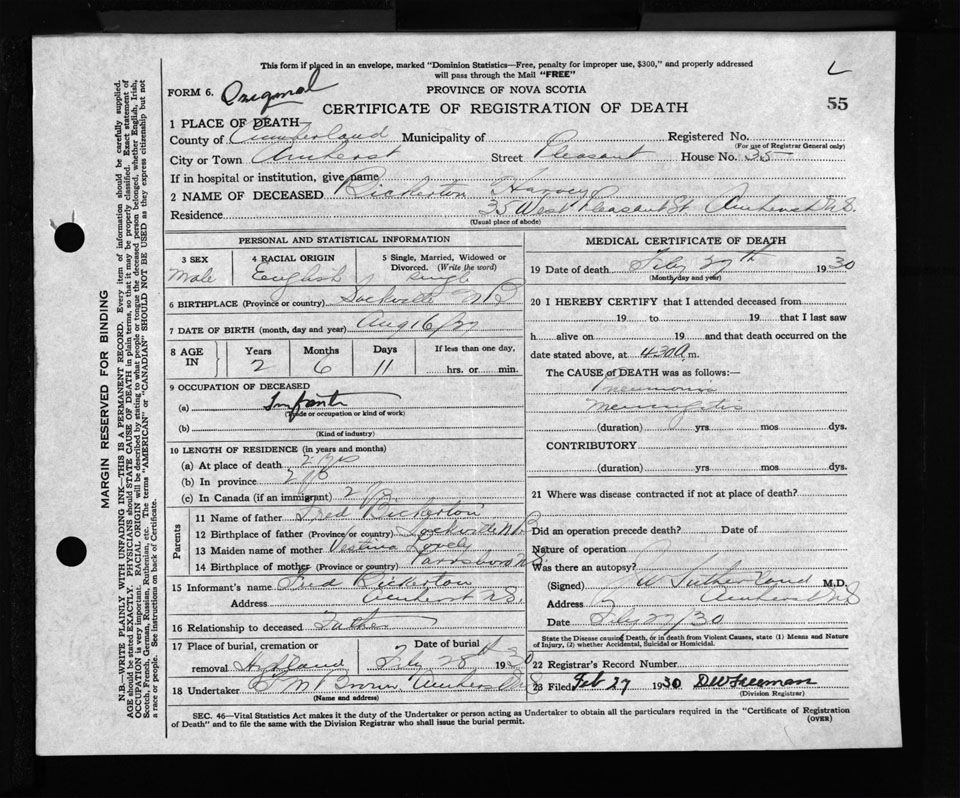 This form if placed in an envelope, marked "Dominion Statistics—Free, penalty for improper use, $300," and properly addressed
will pass through the Mail "FREE"
FORM 6. Original
PROVINCE OF NOVA SCOTIA
CERTIFICATE OF REGISTRATION OF DEATH
55
1 PLACE OF DEATH
County of Cumberland Municipality of Registered No.
(For use of Registrar General only)
City or Town Amherst Street Pleasant House No. 35
If in hospital or institution, give name
2 NAME OF DECEASED Bickerton Harvey
Residence 35 West Pleasant St. Amherst N.S.
(Usual place of abode)
PERSONAL AND STATISTICAL INFORMATION
3 SEX 4 RACIAL ORIGIN 5 Single, Married, Widowed or
Divorced. (Write the word)
Male English Single
6 BIRTHPLACE (Province or country) Sackville N B
7 DATE OF BIRTH (month, day and year) Aug 16/27
8 AGE IN Years Months Days If less than one day,
2 6 11 hrs. or min.
9 OCCUPATION OF DECEASED
(a) Infant
(Trade or occupation or kind of work)
(b)
(Kind of industry)
10 LENGTH OF RESIDENCE (in years and months)
(a) At place of death 2 yrs
(b) In province
(c) In Canada (if an immigrant)
Parents
11 Name of father Fred Bickerton
12 Birthplace of father (Province or country) Sackville N B
13 Maiden name of mother Lovely
14 Birthplace of mother (Province or country) Parrsboro N S
15 Informant's name Fred Bickerton
Address Amherst N.S.
16 Relationship to deceased Father
17 Place of burial, cremation or Date of burial
removal Highland Feby 28th 1930
18 Undertaker Brown Amherst N S
(Name and address)
MEDICAL CERTIFICATE OF DEATH
19 Date of death Feby 27th 1930
(Month, day and year)
20 I HEREBY CERTIFY that I attended deceased from
19 to 19 that I last saw
h alive on 19 and that death occurred on
date stated above, at 4.30 a m.
The CAUSE of DEATH was as follows:—
Pneumonia
Meningitis
(duration) yrs mos dys.
CONTRIBUTORY
(duration) yrs mos dys.
21 Where was disease contracted if not at place of death?
Did an operation precede death? Date of
Nature of operation
Was there an autopsy?
(Signed) W Sutherland M.D.
Address Amherst N S
Date Feby 27/30
State the Disease causing Death, or in death from Violent Causes, state (1) Means and Nature
of Injury, (2) whether Accidental, Suicidal or Homicidal.
22 Registrar's Record Number
23 Filed Feb 27 1930 D W Freeman
(Division Registrar)
SEC. 46—Vital Statistics Act makes it the duty of the Undertaker or person acting as Undertaker to obtain all the particulars required in the "Certificate of Registration
of Death" and to file the same with the Division Registrar who shall issue the burial permit. (OVER)
MARGIN RESERVED FOR BINDING
N.B.—WRITE PLAINLY WITH UNFADING INK—THIS IS A PERMANENT RECORD. Every item of information should be carefully supplied.
AGE should be stated EXACTLY. PHYSICIANS should STATE CAUSE OF DEATH in plain terms, so that it may be properly classified. Exact statement of
OCCUPATION is very important. RACIAL ORIGIN will be described by stating to what people or tongue the deceased person belonged, whether English, Irish,
Scotch, French, German, Russian, Ruthenian, etc. The terms "AMERICAN" or "CANADIAN" SHOULD NOT BE USED as they express citizenship but not
a race or people. See instructions on back of Certificate.